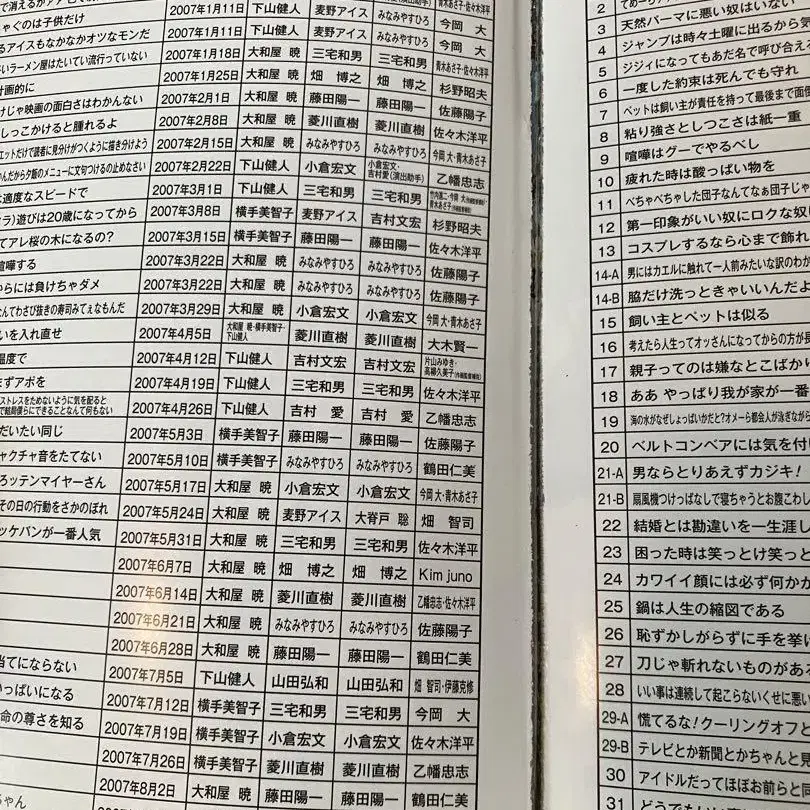 で消えるか
2007年1月11日 下山健人 麦野アイス 青木あさ子・佐々木洋平
しゃぐのは子供だけ 2007年1月11日 下山健人 みなみやすひろ みなみやすひろ 今岡 大
るアイスもなかなかオツなモンだ 2007年1月18日 大和屋 暁 三宅和男 三宅和男 青木あさ子・佐々木洋平
いラーメン屋はたいてい流行っていない 2007年1月25日 大和屋 暁 畑 博之 畑 博之 杉野昭夫
計画的に 2007年2月1日 大和屋 暁 藤田陽一 藤田陽一 佐藤陽子
けじゃ映画の面白さはわかんない 2007年2月8日 大和屋 暁 菱川直樹 菱川直樹 佐々木洋平
しっこかけると腫れるよ 2007年2月15日 大和屋 暁 みなみやすひろ みなみやすひろ 今岡 大・青木あさ子
エットだけで読者に見分けがつくように描き分けよう 2007年2月22日 下山健人 小倉宏文 小倉宏文・吉村愛(演出助手) 乙幡忠志
んだから夕飯のメニューに文句つけるの止めなさい 2007年3月1日 下山健人 三宅和男 三宅和男
適度なスピードで 2007年3月8日 横手美智子 麦野アイス 吉村文宏 杉野昭夫
ラ)遊びは20歳になってから 2007年3月15日 横手美智子 藤田陽一 藤田陽一 佐々木洋平
てアレ桜の木になるの? 2007年3月22日 大和屋 暁 みなみやすひろ みなみやすひろ 佐藤陽子
喧嘩する 2007年3月22日 大和屋 暁 みなみやすひろ みなみやすひろ 佐藤陽子
からには負けちゃダメ 2007年3月29日 大和屋 暁 小倉宏文 小倉宏文 今岡 大・青木あさ子
なんてわさび抜きの寿司みてぇなもんだ 2007年4月5日 大和屋 暁・横手美智子・下山健人 菱川直樹 菱川直樹 大木賢一
いを入れ直せ 2007年4月12日 下山健人 吉村文宏 吉村文宏 片山みゆき・高柳久美子
温度で 2007年4月19日 下山健人 三宅和男 三宅和男 佐々木洋平
まずアポを 2007年4月26日 下山健人 吉村 愛 吉村 愛 乙幡忠志
ストレスをためないように気を配ると
で結局僕らにできることなんて何もない 2007年5月3日 横手美智子 藤田陽一 藤田陽一 佐藤陽子
だいたい同じ 2007年5月10日 横手美智子 みなみやすひろ みなみやすひろ 鶴田仁美
ャクチャ音をたてない 2007年5月17日 大和屋 暁 小倉宏文 小倉宏文 今岡 大・青木あさ子
ろッテンマイヤーさん 2007年5月24日 大和屋 暁 麦野アイス 大脊戸 聡 畑 智司
その日の行動をさかのぼれ 2007年5月31日 大和屋 暁 三宅和男 三宅和男 佐々木洋平
ッケバンが一番人気 2007年6月7日 大和屋 暁 畑 博之 畑 博之 Kim juno
2007年6月14日 大和屋 暁 菱川直樹 菱川直樹 乙幡忠志・佐々木洋平
2007年6月21日 大和屋 暁 みなみやすひろ みなみやすひろ 佐藤陽子
2007年6月28日 大和屋 暁 藤田陽一 藤田陽一 鶴田仁美
当てにならない 2007年7月5日 下山健人 山田弘和 山田弘和 畑 智司・伊藤克修
いっぱいになる 2007年7月12日 横手美智子 三宅和男 三宅和男 今岡 大
命の尊さを知る 2007年7月19日 横手美智子 小倉宏文 小倉宏文 佐々木洋平
2007年7月26日 横手美智子 菱川直樹 菱川直樹 乙幡忠志
2007年8月2日 大和屋 暁 藤田陽一 藤田陽一 鶴田仁美
ちゃん
2
3 天然パーマに悪い奴はいない
4 ジャンプは時々土曜に出るから気
5 ジジィになってもあだ名で呼び合え
6 一度した約束は死んでも守れ
7 ペットは飼い主が責任を持って最後まで面倒
8 粘り強さとしつこさは紙一重
9 喧嘩はグーでやるべし
10 疲れた時は酸っぱい物を
11 べちゃべちゃした団子なんてなぁ団子じゃ
12 第一印象がいい奴にロクな奴
13 コスプレするなら心まで飾れ
14-A 男にはカエルに触れて一人前みたいな訳のわか
14-B 脇だけ洗っときゃいいんだよ
15 飼い主とペットは似る
16 考えたら人生ってオッさんになってからの方が長
17 親子ってのは嫌なとこばかり
18 ああ やっぱり我が家が一番
19 海の水がなぜしょっぱいかだと?オメーら都会人が泳ぎながら
20 ベルトコンベアには気を付け
21-A 男ならとりあえずカジキ!
21-B 扇風機つけっぱなしで寝ちゃうとお腹こわし
22 結婚とは勘違いを一生涯し
23 困った時は笑っとけ笑っと
24 カワイイ顔には必ず何かか
25 鍋は人生の縮図である
26 恥ずかしがらずに手を挙げ
27 刀じゃ斬れないものがある
28 いい事は連続して起こらないくせに悪い
29-A 慌てるな!クーリングオフと
29-B テレビとか新聞とかちゃんと見
30 アイドルだってほぼお前らと
31